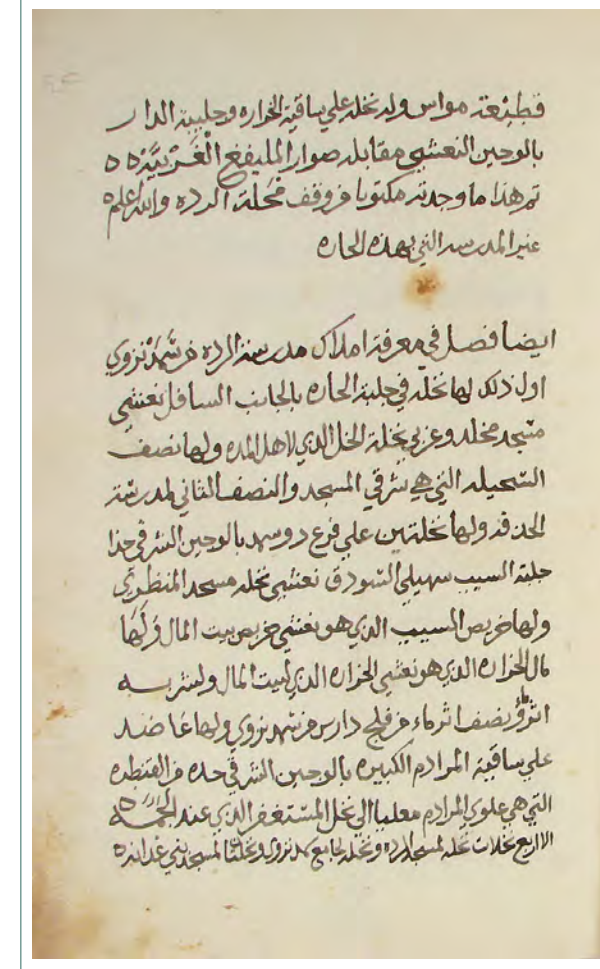 قطيعته مواس وله نخله علي ساقية الخراره وحلبية الدار
بالوجين النعشي مقابله صوار المليفغ الغربية
تم هذا ما وجدته مكتوبا من وقف محلة الرده والله اعلم
غير المدرسة التي بهذه الحاره
ايضا فصل في معرفة املاك مدرسة الرده من سمد نزوي
اول ذلك لها نخله في جلبة الحاره بالجانب السافل نعشي
مسجد مخلد وغربي نخلة الخل الذي لاهل المده ولها نصف
النخيله التي هي شرقي المسجد والنصف الثاني لمدرسة
ولها نخلتين علي فرع دوسهد بالوجين الشرقي حذا
جلبة السيب سهيلي السودق نعشي نخله مسجد
ولها خريص المسيب الذي هو نعشي خريص بيت المال ولها
مال الخراره الذي هو نعشي الخراره الذي لبيت المال ولشربه
اثر ونصف اثر ماء من فلج دارس من سمد نزوي ولها عاضد
علي ساقية المرادم الكبيره بالوجين الشرقي حده من القنطره
التي هي علوي المرادم معليا الي نخل المستغفر الذي عند
الا اربع نخلات نخله لمسجد الرده ونخله لجامع سمد نزوي ونخلتا لمسجد بني